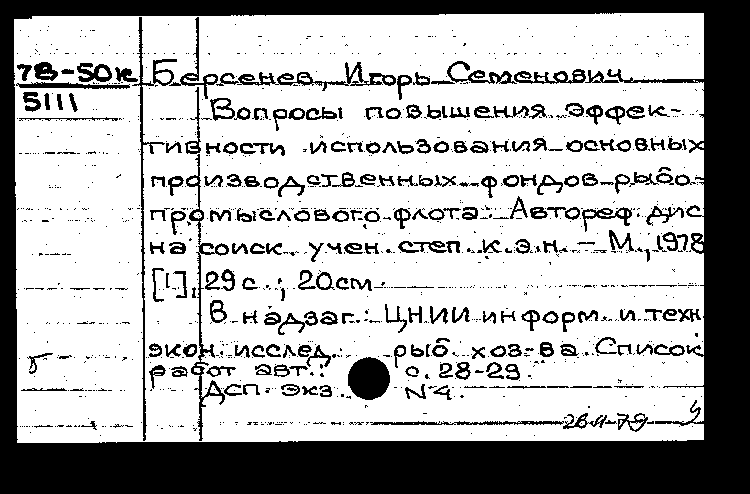 78-50к Берсенев, Игорь Семенович.
5111
Вопросы повышения эффек-
тивности использования основных
производственных фондов рыбо-
промыслового флота: Автореф. дис
на соиск. учен. степ. к.э.н. – М., 1978
[1], 29 с.; 20 см.
В надзаг.: ЦНИИ информ. и техн
экон. исслед. рыб. хоз-ва. Список
работ авт.: с. 28-29.
ДСП. Экз. N 4.